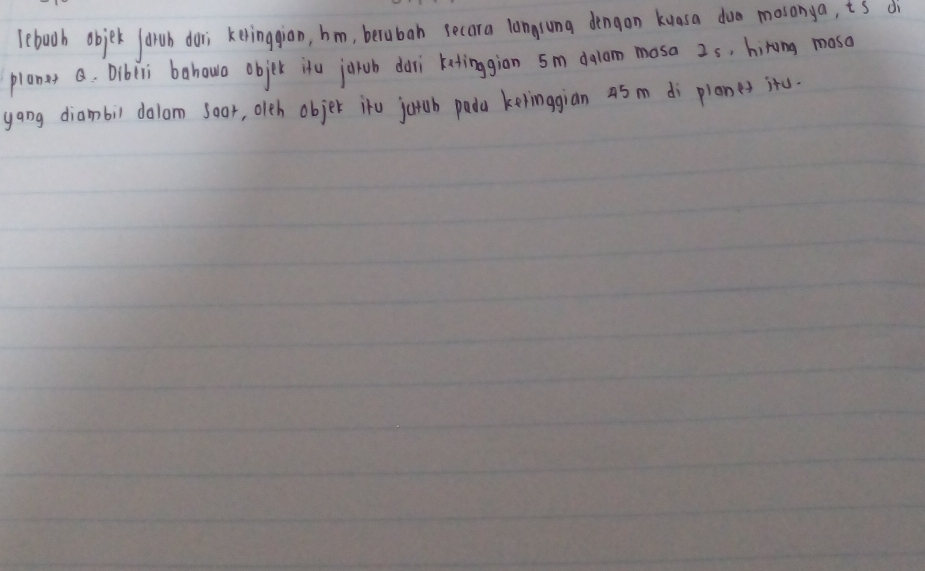 Sebuah objek jatuh dari ketinggian, hm, berubah secara langsung dengan kuasa dua masanya, ts di
planet Q. Diberi bahawa objek itu jatuh dari ketinggian 5m dalam masa 2s, hitung masa
yang diambil dalam saat, oleh objek itu jatuh pada ketinggian 45m di planet itu.